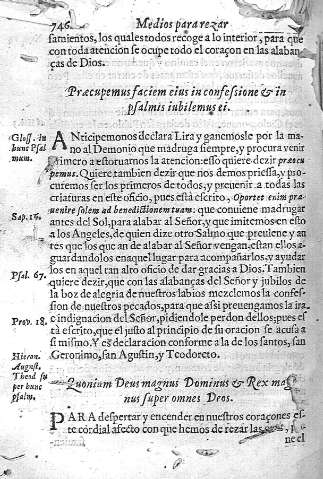 746 Medios para rezar
samientos, los quales todos recoge a lo interior, para que
con toda atencion se ocupe todo el coraçon en las alaban-
ças de Dios.
Præcupemus faciem eius in confessione & in
psalmis iubilemus ei.
Gloss. in
hunc Psal
mum.
ANticipemonos declara Lira y ganemosle por la ma-
no al Demonio que madruga siempre, y procura venir
primero a estoruarnos la atencion: esso quiere dezir præcu-
pemus. Quiere tambien dezir que nos demos priessa, y pro-
curemos ser los primeros de todos, y preuenir a todas las
criaturas en este oficio, pues està escrito, Oportet enim præ-
uenire solem ad benedictionem tuam: que conuiene madrugar
Sap. 16.
antes del Sol, para alabar al Señor, y que imitemos en esto
a los Angeles, de quien dize otro Salmo que preuiene y an
tes que los que an de alabar al Señor vengan, estan ellos a-
guardandolos en aquel lugar para acompañarlos, y ayudar
Psal. 67.
los en aquel tan alto oficio de dar gracias a Dios. Tambien
quiere dezir, que con las alabanças del Señor y jubilos de
la boz de alegria de nuestros labios mezclemos la confes-
sion de nuestros pecados, para que assi preuengamos la ira
e indignacion del Señor, pidiendole perdon dellos; pues es
Prov. 18.
tà escrito, que el justo al principio de su oracion se acusa a
si mismo. Y es declaracion conforme a la de los santos, san
Geronimo, san Agustin, y Teodoreto.
Hieron.
August.
Theod su
per hunc
psalm.
Quoniam Deus magnus Dominus & Rex mag
nus super omnes Deos.
PARA despertar y encender en nuestros coraçones es-
te cordial afecto con que hemos de rezar las
ne el